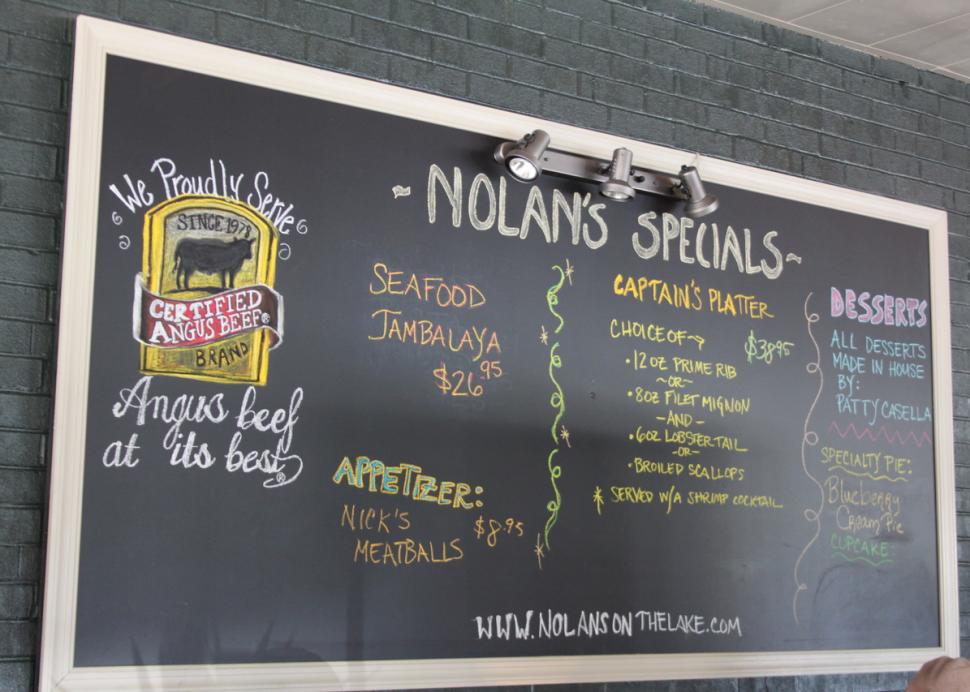 We Proudly Serve
SINCE 1978
CERTIFIED
ANGUS BEEF®
BRAND
Angus beef
at its best®
~NOLAN'S SPECIALS~
SEAFOOD
JAMBALAYA
$26.95
APPETIZER:
NICK'S $8.95
MEATBALLS
CAPTAIN'S PLATTER
CHOICE OF→ $38.95
•12OZ PRIME RIB
~OR~
•8OZ FILET MIGNON
—AND—
•6OZ LOBSTER TAIL
-OR-
•BROILED SCALLOPS
* SERVED W/A SHRIMP COCKTAIL
DESSERTS
ALL DESSERTS
MADE IN HOUSE
BY:
PATTY CASELLA
SPECIALTY PIE:
Blueberry
Cream Pie
CUPCAKE:
WWW.NOLANSONTHELAKE.COM